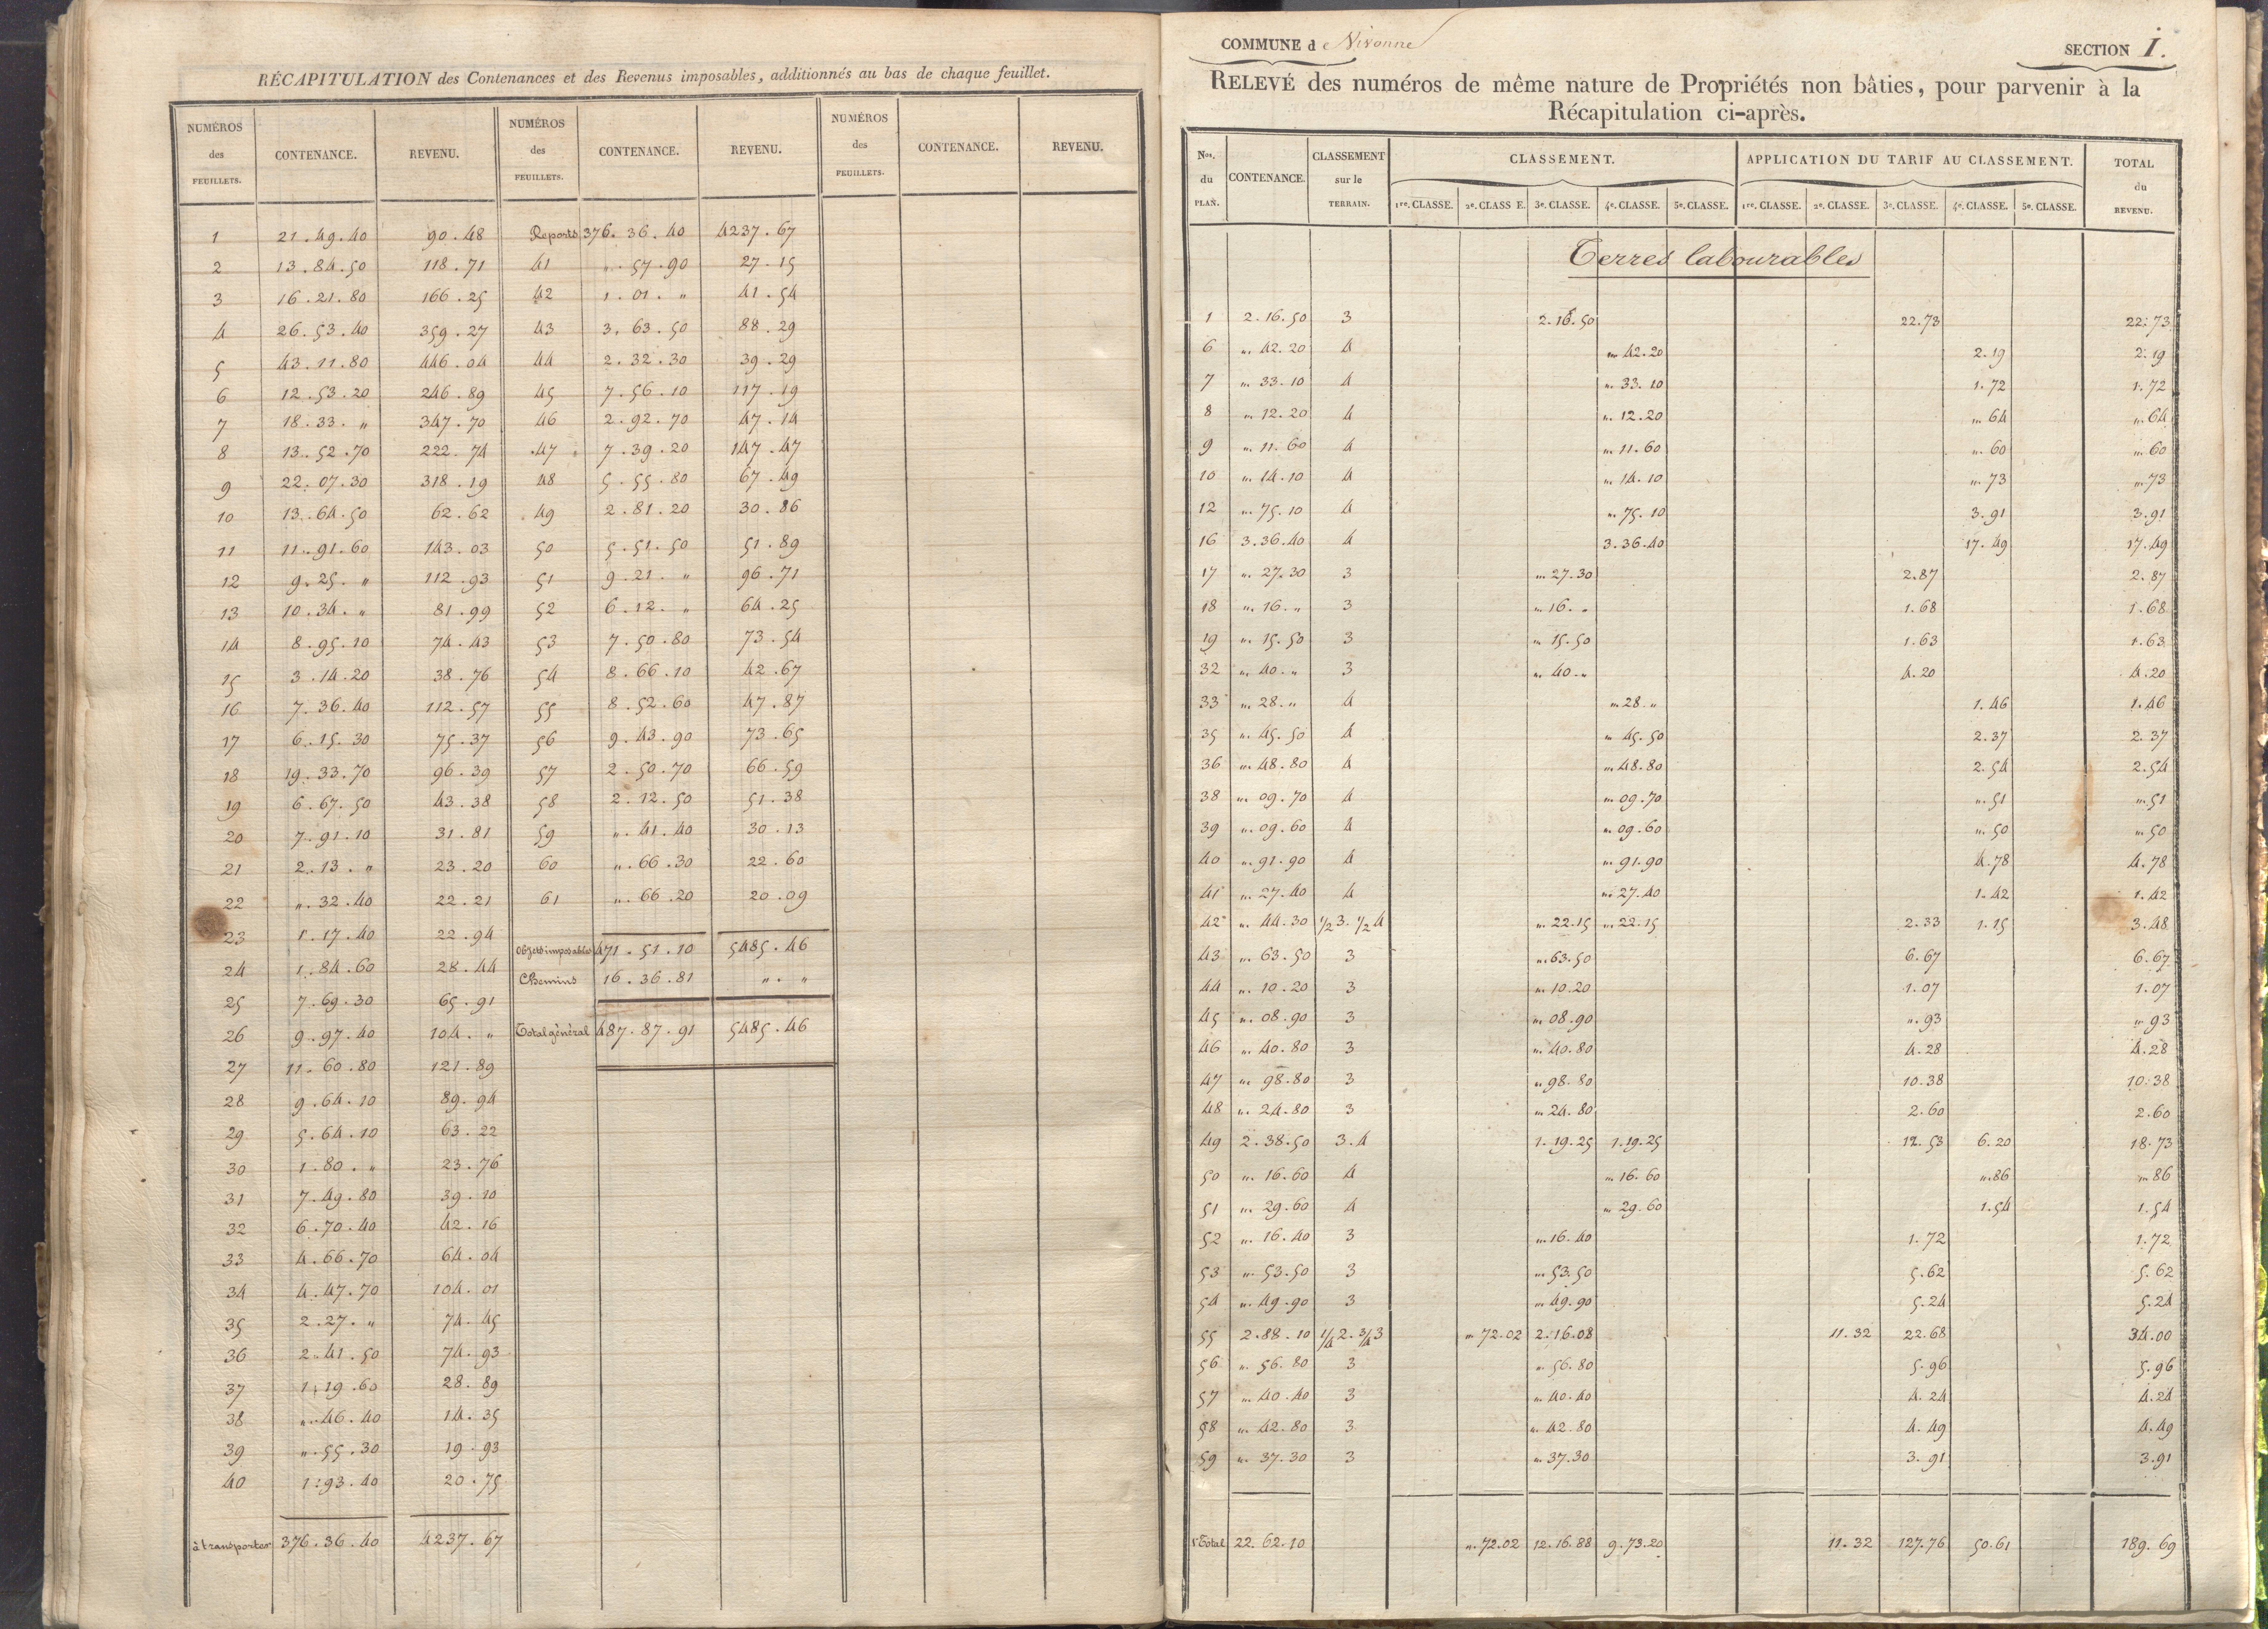 RÉCAPITULATION des Contenances et des Revenus imposables, additionnés au bas de chaque feuillet.
NUMÉROS des FEUILLETS. CONTENANCE. REVENU. NUMÉROS des FEUILLETS. CONTENANCE. REVENU. NUMÉROS des FEUILLETS. CONTENANCE. REVENU.
1 21.49.40 90.48 Reports 376.36.40 4237.67
2 13.84.50 118.71 41 ".57.90 27.15
3 16.21.80 166.25 42 1.01." 41.54
4 26.53.40 359.27 43 3.63.50 88.29
5 43.11.80 446.04 44 2.32.30 39.29
6 12.53.20 246.89 45 7.56.10 117.19
7 18.33." 347.70 46 2.92.70 47.14
8 13.52.70 222.74 47 7.39.20 147.47
9 22.07.30 318.19 48 5.55.80 67.49
10 13.64.50 62.62 49 2.81.20 30.86
11 11.91.60 143.03 50 5.51.50 51.89
12 9.25." 112.93 51 9.21." 96.71
13 10.34." 81.99 52 6.12." 64.25
14 8.95.10 74.43 53 7.50.80 73.54
15 3.14.20 38.76 54 8.66.10 42.67
16 7.36.40 112.57 55 8.52.60 47.87
17 6.15.30 75.37 56 9.43.90 73.65
18 19.33.70 96.39 57 2.50.70 66.59
19 6.67.50 43.38 58 2.12.50 51.38
20 7.91.10 31.81 59 ".41.40 30.13
21 2.13." 23.20 60 ".66.30 22.60
22 ".32.40 22.21 61 ".66.20 20.09
23 1.17.40 22.94
Objets imposables 471.51.10 5485.46
24 1.84.60 28.44 Chemins 16.36.81 "."
25 7.69.30 65.91
26 9.97.40 104." Total général 487.87.91 5485.46
27 11.60.80 121.89
28 9.64.10 89.94
29 5.64.10 63.22
30 1.80." 23.76
31 7.49.80 39.10
32 6.70.40 42.16
33 4.66.70 64.04
34 4.47.70 104.01
35 2.27." 74.45
36 2.41.50 74.93
37 1.19.60 28.89
38 ".46.40 14.35
39 ".55.30 19.93
40 1.93.40 20.75
à transporter 376.36.40 4237.67
COMMUNE de Vivonne
SECTION I.
RELEVÉ des numéros de même nature de Propriétés non bâties, pour parvenir à la
Récapitulation ci-après.
Nos. du PLAN. CONTENANCE. CLASSEMENT sur le TERRAIN. CLASSEMENT. APPLICATION DU TARIF AU CLASSEMENT. TOTAL du REVENU.
1re. CLASSE. 2e. CLASSE. 3e. CLASSE. 4e. CLASSE. 5e. CLASSE. 1re. CLASSE. 2e. CLASSE. 3e. CLASSE. 4e. CLASSE. 5e. CLASSE.
Terres labourables
1 2.16.50 3 2.16.50 22.73 22.73
6 ".42.20 4 ".42.20 2.19 2.19
7 ".33.10 4 ".33.10 1.72 1.72
8 ".12.20 4 ".12.20 ".64 ".64
9 ".11.60 4 ".11.60 ".60 ".60
10 ".14.10 4 ".14.10 ".73 ".73
12 ".75.10 4 ".75.10 3.91 3.91
16 3.36.40 4 3.36.40 17.49 17.49
17 ".27.30 3 ".27.30 2.87 2.87
18 ".16." 3 ".16." 1.68 1.68
19 ".15.50 3 ".15.50 1.63 1.63
32 ".40." 3 ".40." 4.20 4.20
33 ".28." 4 ".28." 1.46 1.46
35 ".45.50 4 ".45.50 2.37 2.37
36 ".48.80 4 ".48.80 2.54 2.54
38 ".09.70 4 ".09.70 ".51 ".51
39 ".09.60 4 ".09.60 ".50 ".50
40 ".91.90 4 ".91.90 4.78 4.78
41 ".27.40 4 ".27.40 1.42 1.42
42 ".44.30 1/2 3. 1/2 4 ".22.15 ".22.15 2.33 1.15 3.48
43 ".63.50 3 ".63.50 6.67 6.67
44 ".10.20 3 ".10.20 1.07 1.07
45 ".08.90 3 ".08.90 ".93 ".93
46 ".40.80 3 ".40.80 4.28 4.28
47 ".98.80 3 ".98.80 10.38 10.38
48 ".24.80 3 ".24.80 2.60 2.60
49 2.38.50 3.4 1.19.25 1.19.25 12.53 6.20 18.73
50 ".16.60 4 ".16.60 ".86 ".86
51 ".29.60 4 ".29.60 1.54 1.54
52 ".16.40 3 ".16.40 1.72 1.72
53 ".53.50 3 ".53.50 5.62 5.62
54 ".49.90 3 ".49.90 5.24 5.24
55 2.88.10 1/4 2. 3/4 3 ".72.02 2.16.08 11.32 22.68 34.00
56 ".56.80 3 ".56.80 5.96 5.96
57 ".40.40 3 ".40.40 4.24 4.24
58 ".42.80 3 ".42.80 4.49 4.49
59 ".37.30 3 ".37.30 3.91 3.91
1er Total 22.62.10 ".72.02 12.16.88 9.73.20 11.32 127.76 50.61 189.69